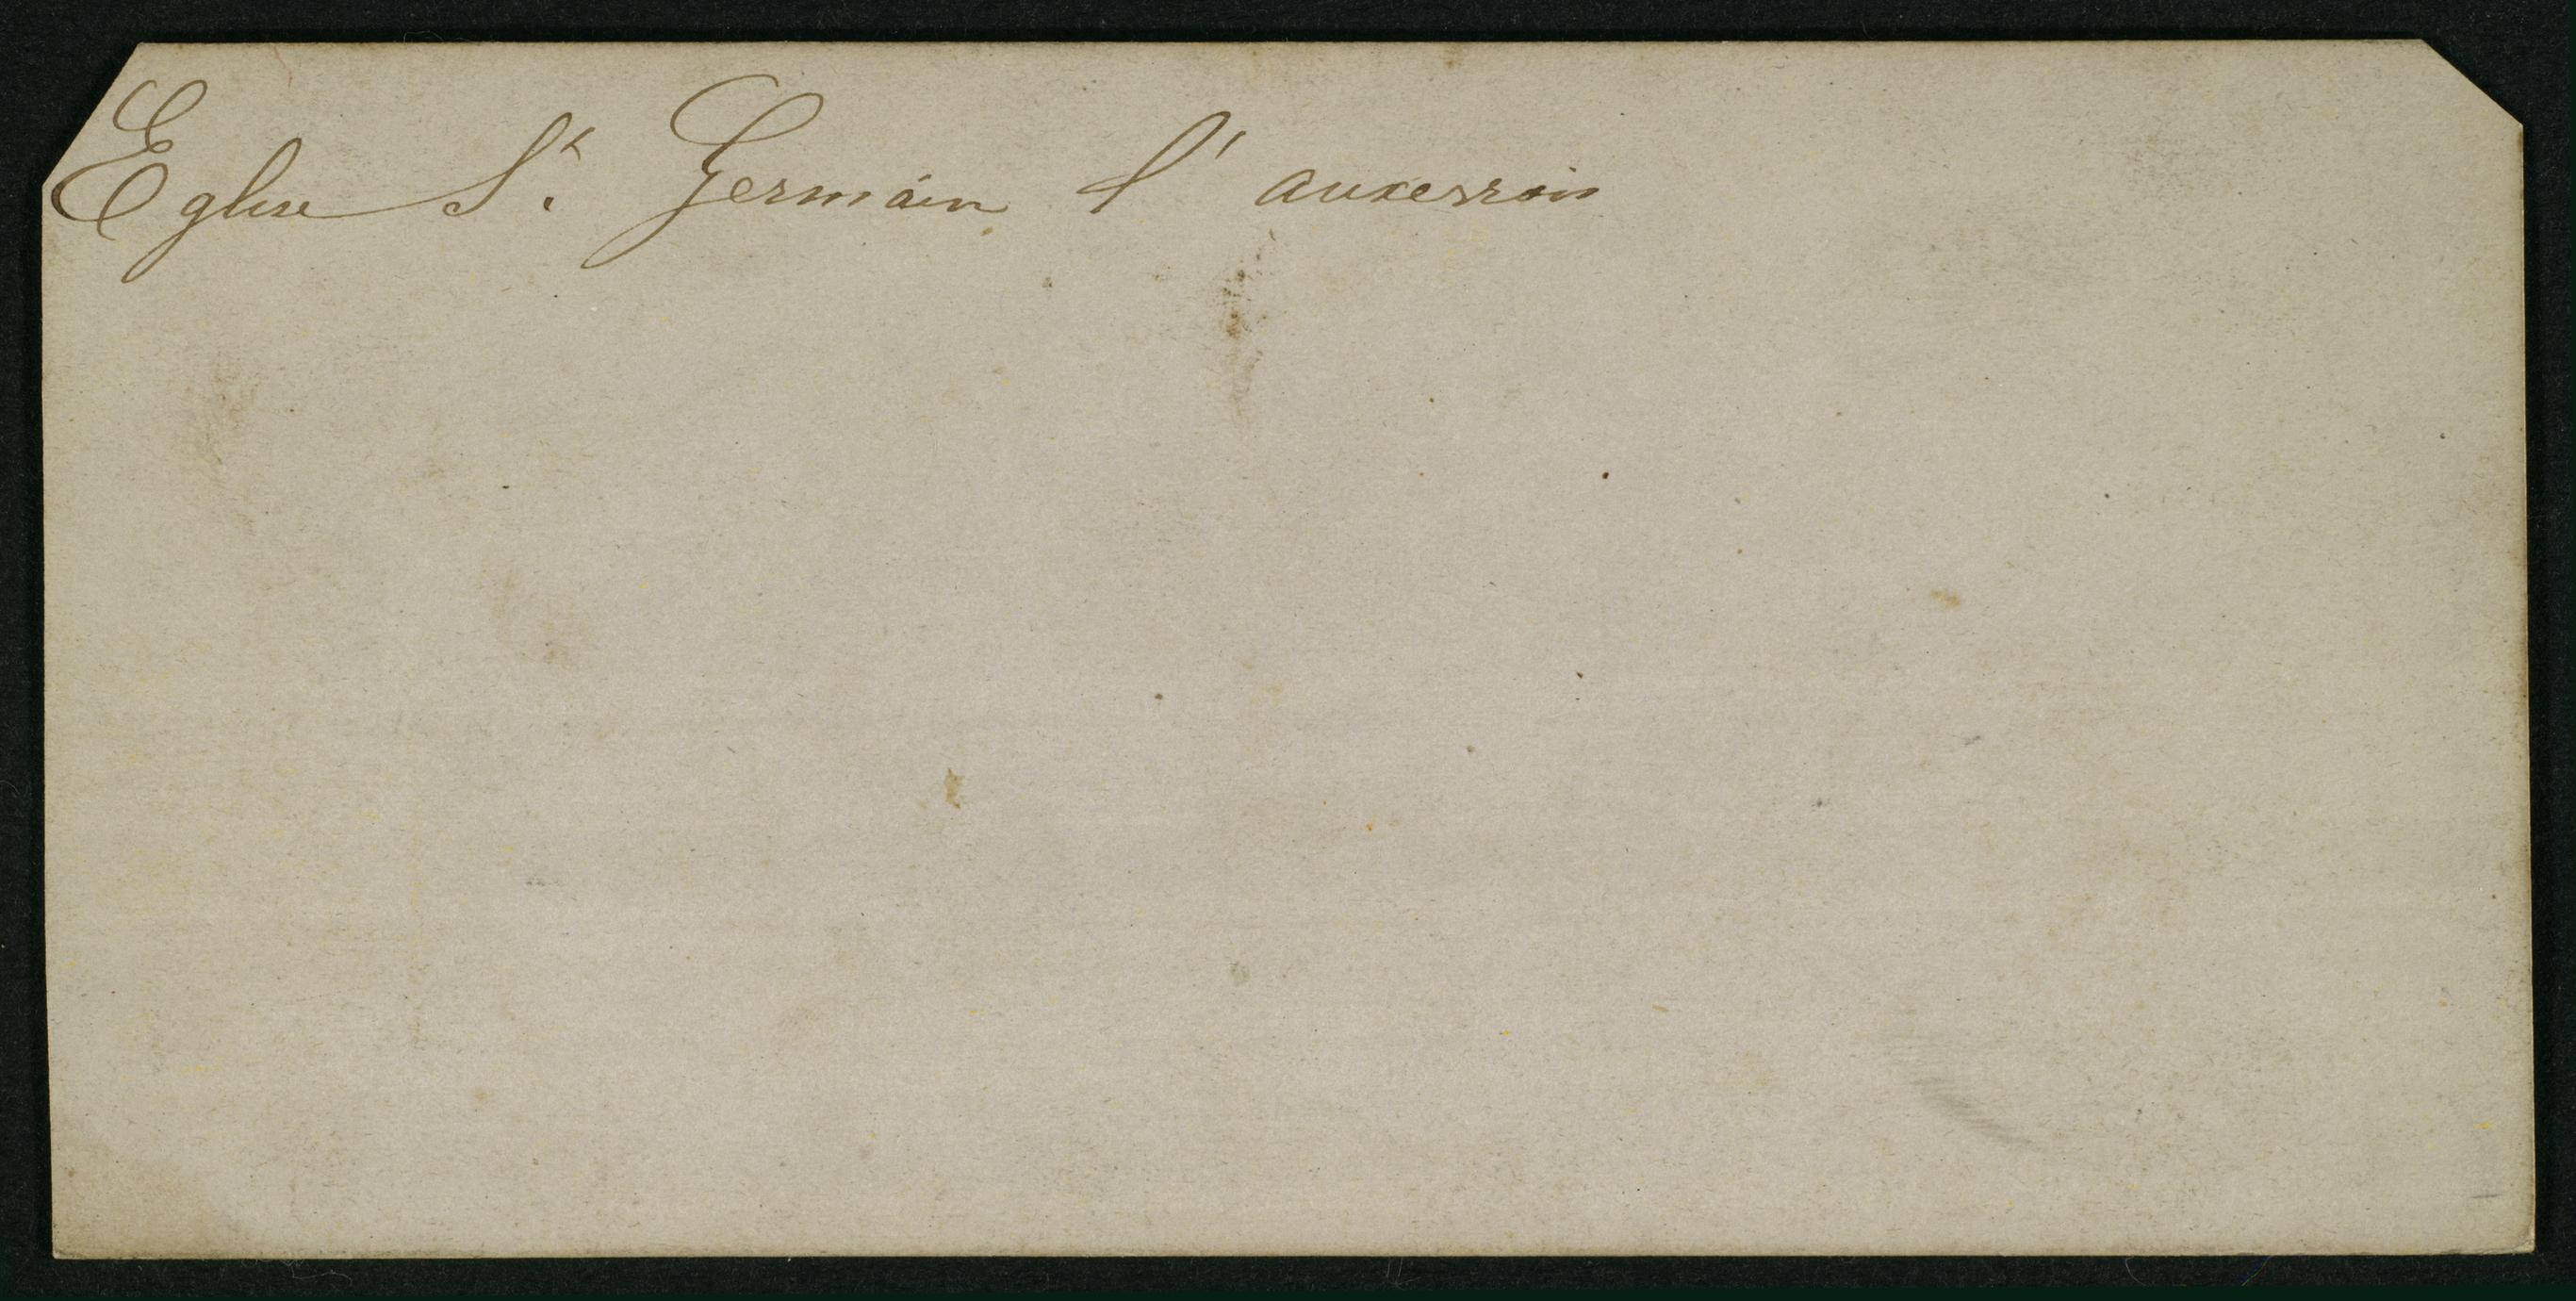 Eglise St. Germain l'auxerrois